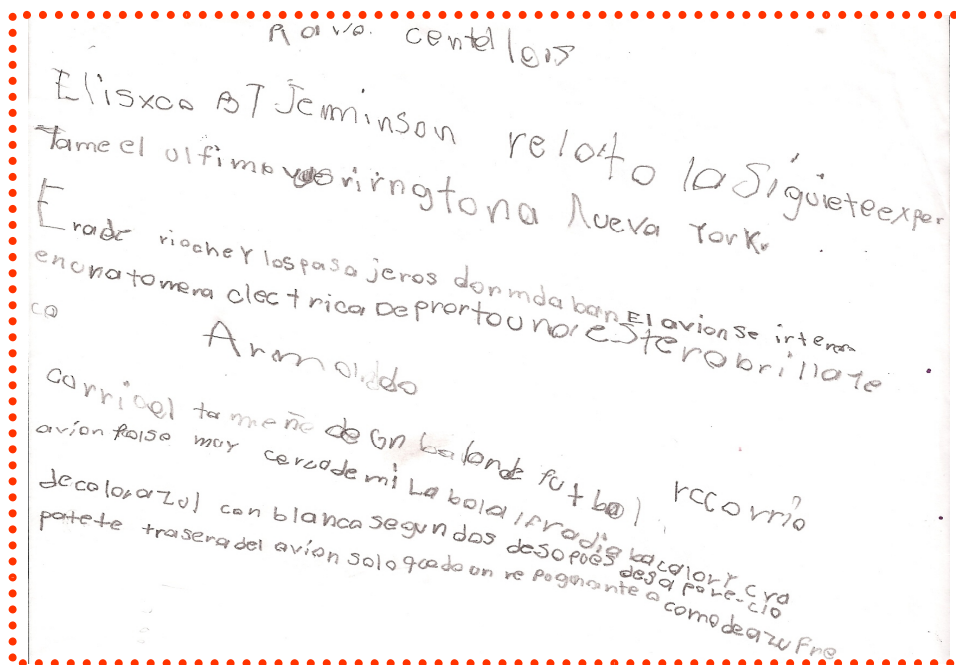 Rayo centellas
Elisxco BT Jeminson relato la siguieteexper
Tame el ultimo vus rirngtona Nueva York.
Erade rioche Y lospasajeros dormdaban El avion se interen
enunatomera clectrica De prortouna esterabrillate
ca
Armoldo
corrioel tameño de Gn balonde futbol rccorrio
avion Paiso muy cercade mi La bola irradiabacalor Y cra
decolorazul con blanca segundos desopués desaparecio
patete traseradel avion solo quedo un repognante o comodeazufre